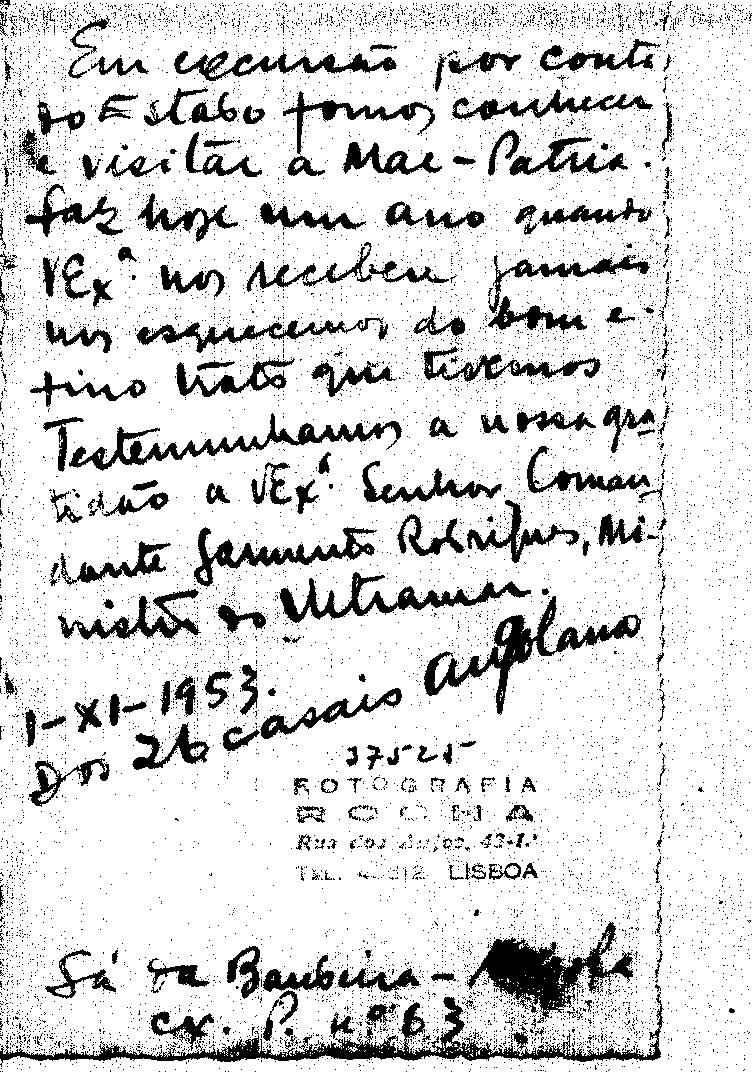 Em excursão por conta
do Estado fomos conhecer
e visitar a Mãe-Patria.
faz hoje um ano quando
VExª. nos recebeu jamais
nos esquecemos do bom e
fino trato que tivemos
Testemunhamos a nossa gra-
tidão a VExª. Senhor Coman-
dante Sarmento Rodrigues, Mi-
nistro do Ultramar.
1-XI-1953.
Dos 26 casais Angolano
37525
FOTOGRAFIA
ROCHA
Rua dos Anjos, 43-1.º
TEL. LISBOA
Sá da Bandeira - Angola
cx. P. nº 63